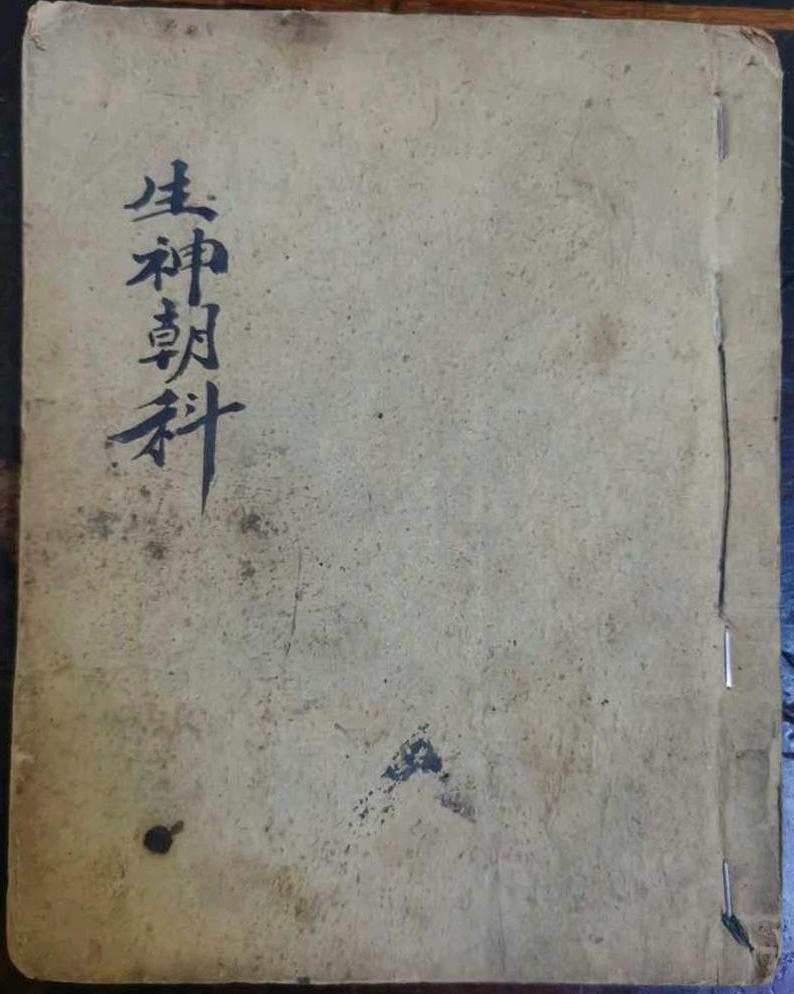 生神朝科